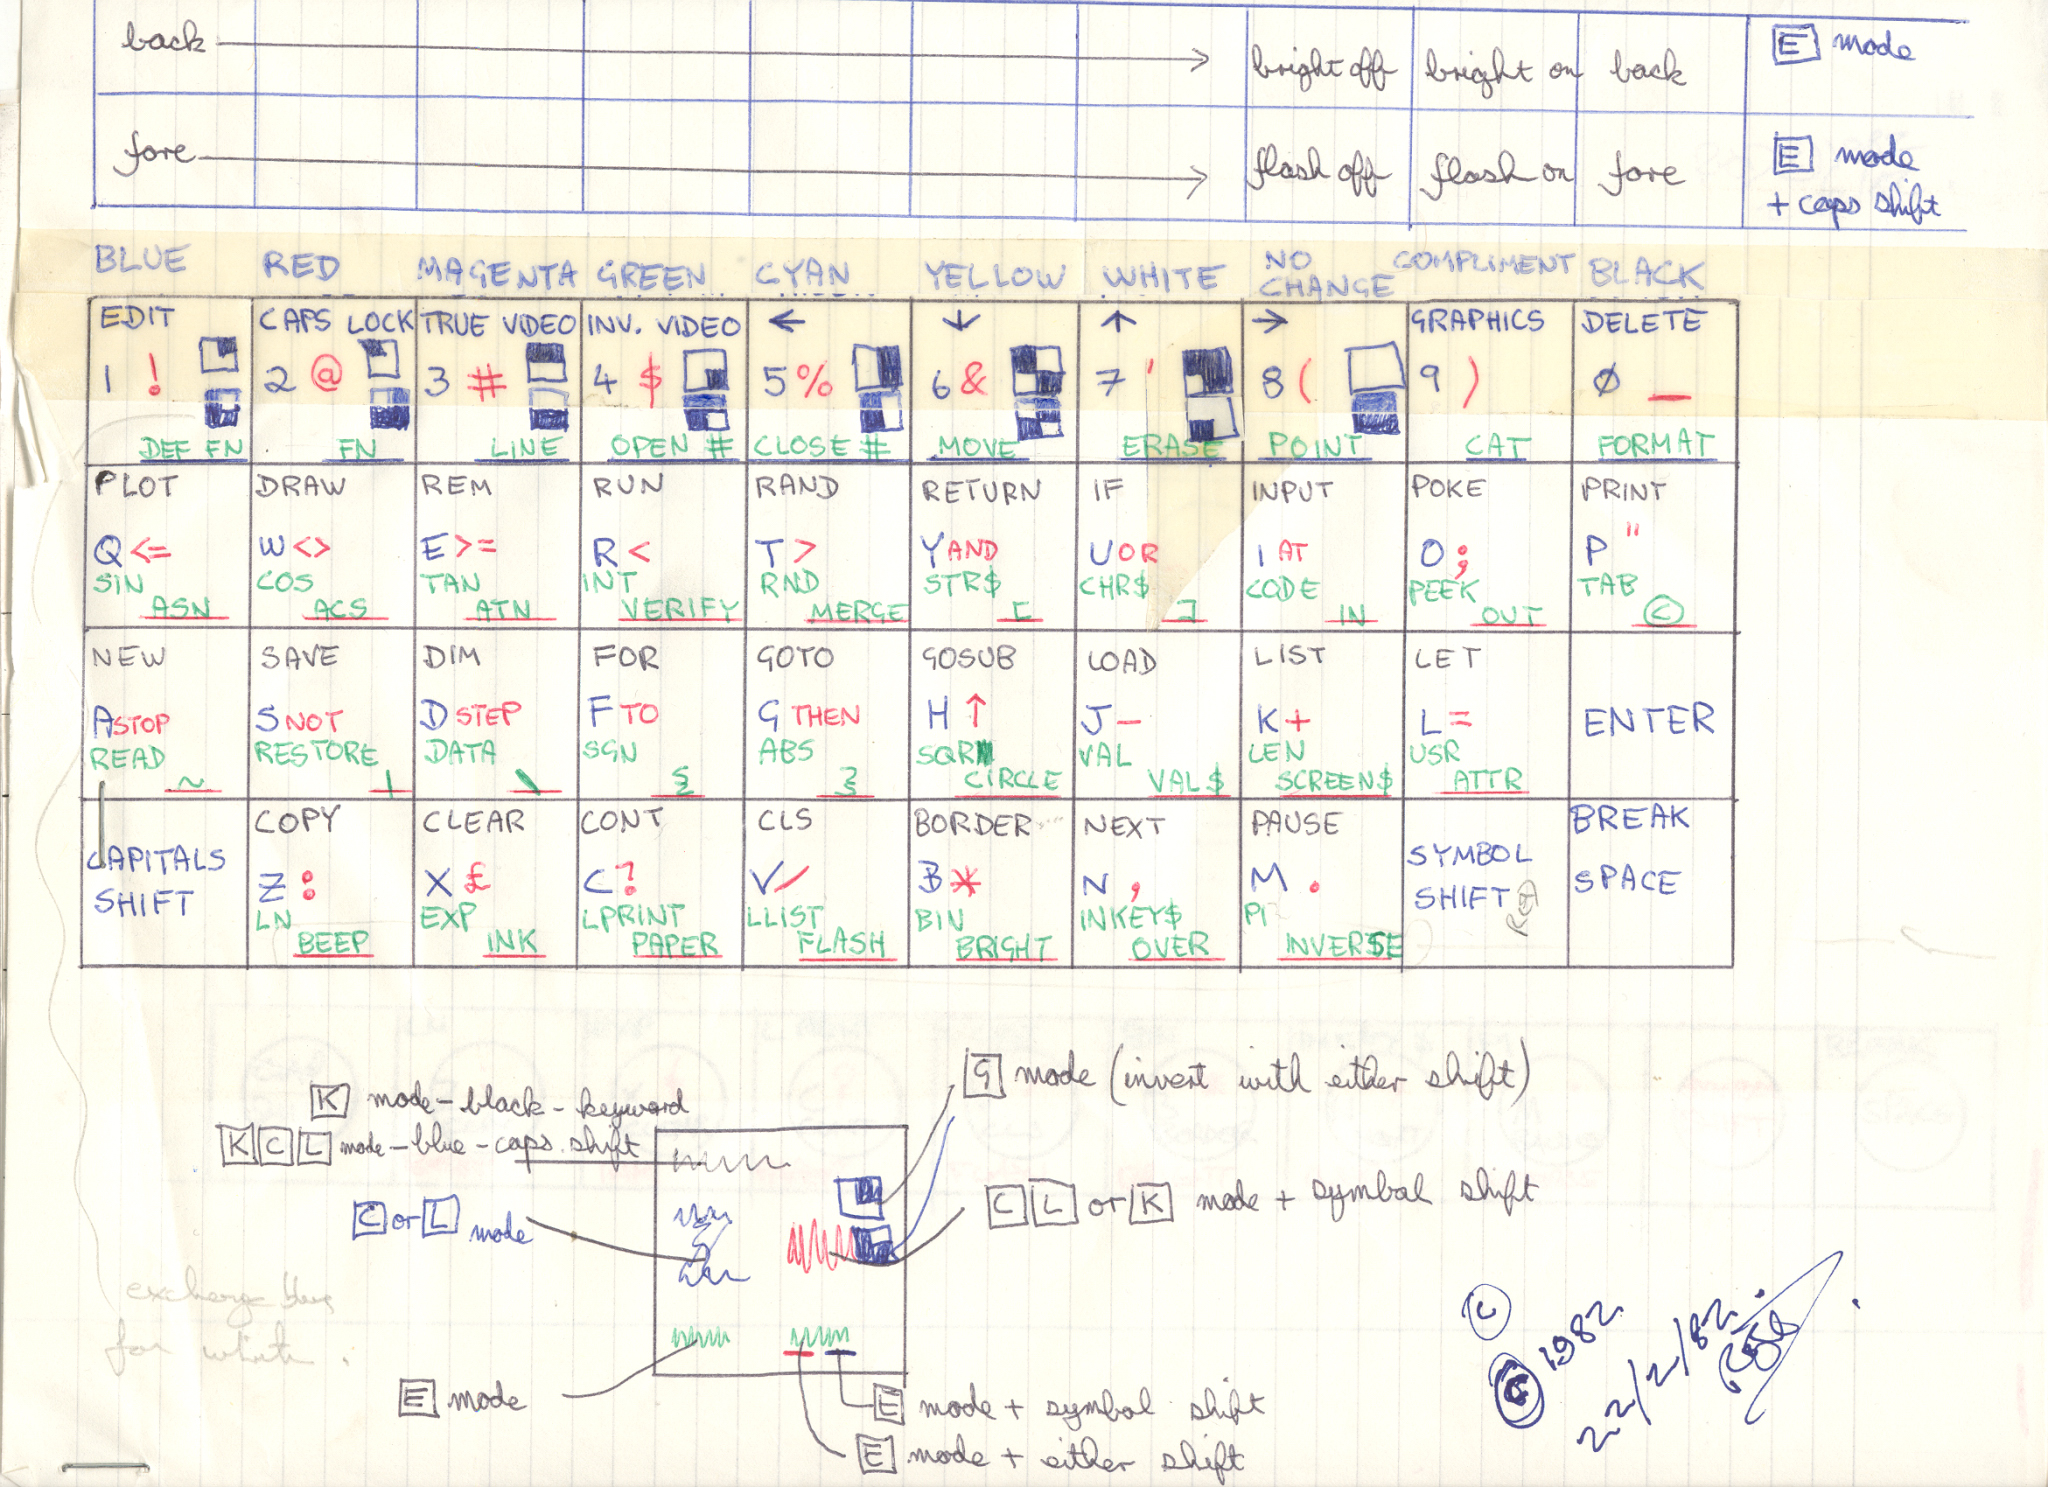 back bright off bright on back E mode
fore flash off flash on fore E mode
+ caps shift
BLUE RED MAGENTA GREEN CYAN YELLOW WHITE NO CHANGE COMPLIMENT BLACK
EDIT CAPS LOCK TRUE VIDEO INV. VIDEO ← ↓ ↑ → GRAPHICS DELETE
1 ! 2 @ 3 # 4 $ 5 % 6 & 7 ' 8 ( 9 ) 0 _
DEF FN FN LINE OPEN # CLOSE # MOVE ERASE POINT CAT FORMAT
PLOT DRAW REM RUN RAND RETURN IF INPUT POKE PRINT
Q <= W <> E >= R < T > Y AND U OR I AT O ; P "
SIN COS TAN INT RND STR$ CHR$ CODE PEEK TAB
ASN ACS ATN VERIFY MERGE [ ] IN OUT ©
NEW SAVE DIM FOR GOTO GOSUB LOAD LIST LET
A STOP S NOT D STEP F TO G THEN H ↑ J − K + L = ENTER
READ RESTORE DATA SGN ABS SQR VAL LEN USR
~ | \ { } CIRCLE VAL$ SCREEN$ ATTR
COPY CLEAR CONT CLS BORDER NEXT PAUSE BREAK
CAPITALS SHIFT Z : X £ C ? V / B * N , M . SYMBOL SHIFT SPACE
LN EXP LPRINT LLIST BIN INKEY$ PI
BEEP INK PAPER FLASH BRIGHT OVER INVERSE
G mode (invert with either shift)
K mode - black - keyword
K C L mode - blue - caps. shift
C L or K mode + symbol shift
C or L mode
E mode
E mode + symbol shift
E mode + either shift
for white.
©
© 1982
22/2/82.